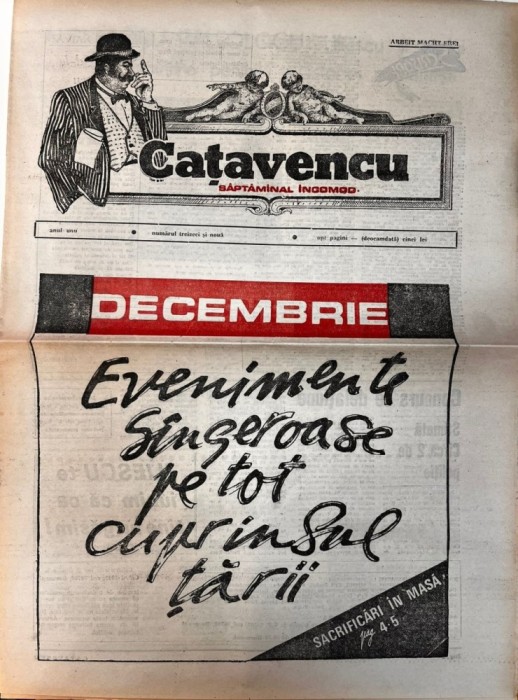 ARBEIT MACHT FREI
Cațavencu
SĂPTĂMÎNAL INCOMOD
anul unu • numărul treizeci și nouă • opt pagini — (deocamdată) cinci lei
DECEMBRIE
Evenimente
sîngeroase
pe tot
cuprinsul
țării
SACRIFICĂRI ÎN MASĂ
pag. 4-5